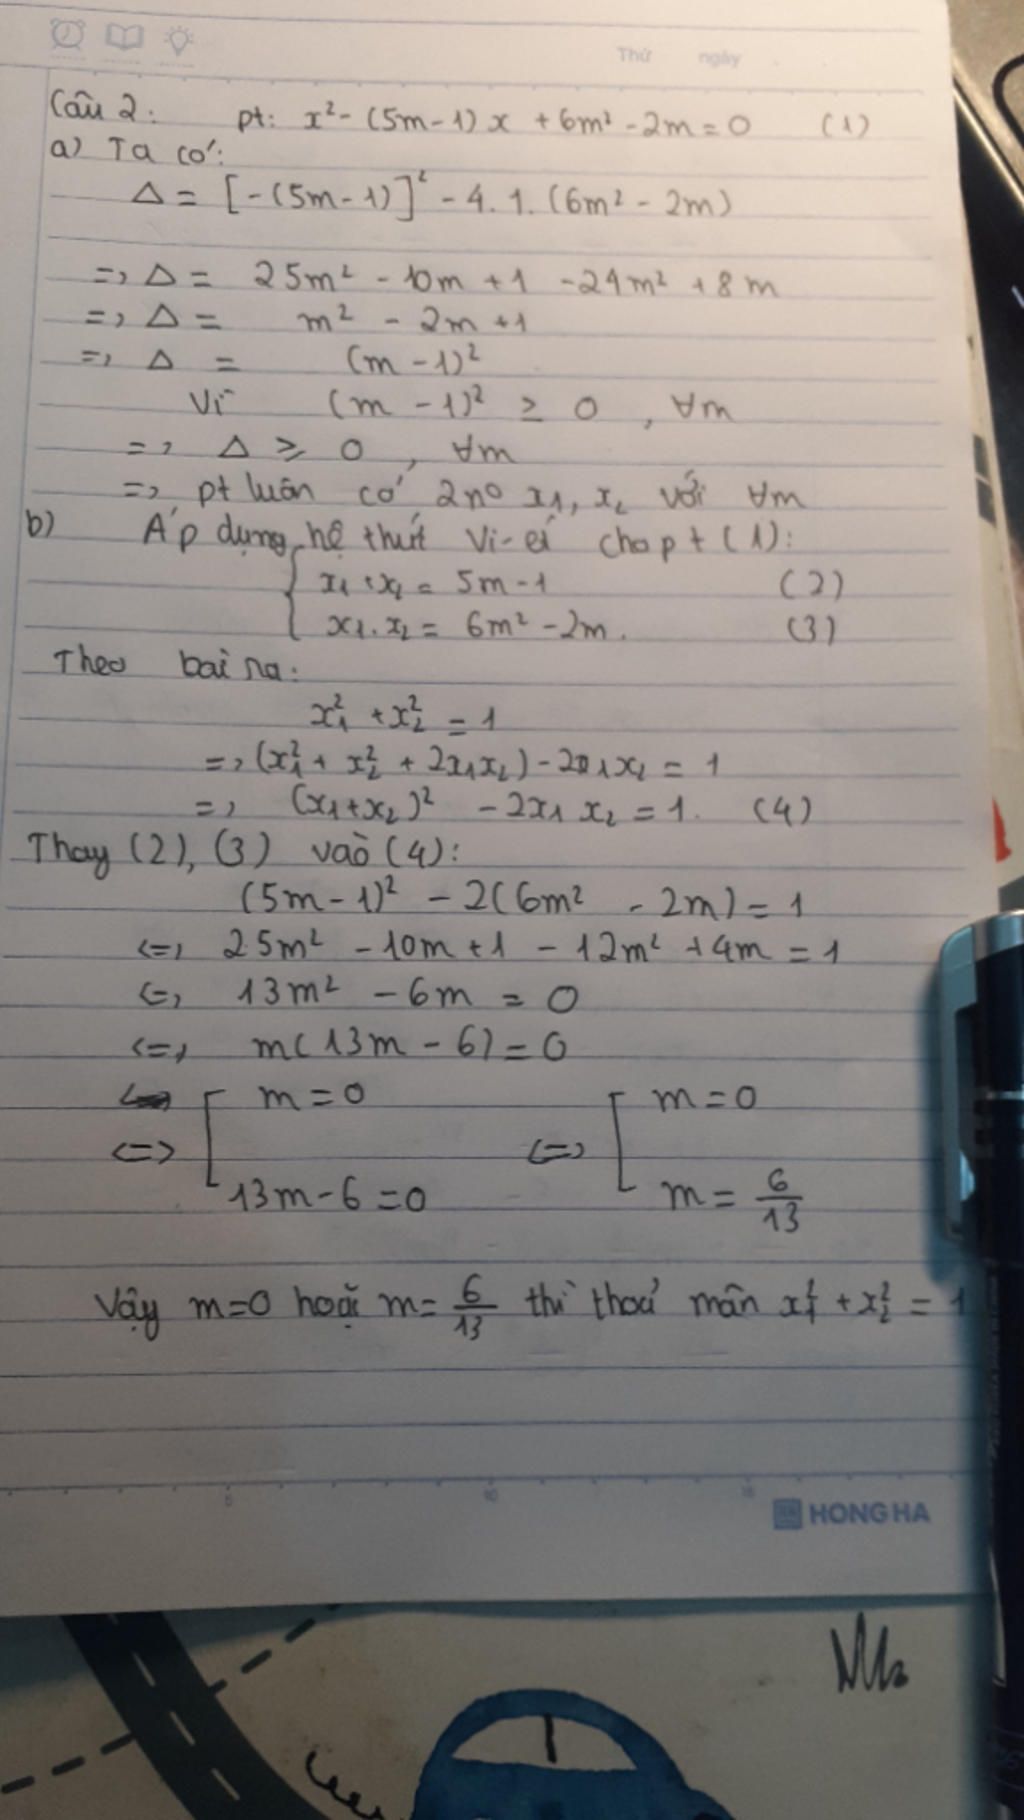 Thứ ngày
Câu 2: pt: x² - (5m-1)x + 6m² - 2m = 0 (1)
a) Ta có:
Δ = [-(5m-1)]² - 4.1.(6m² - 2m)
=> Δ = 25m² - 10m + 1 - 24m² + 8m
=> Δ = m² - 2m + 1
=> Δ = (m - 1)²
Vì (m - 1)² ≥ 0, ∀m
=> Δ ≥ 0, ∀m
=> pt luôn có 2 n⁰ x₁, x₂ với ∀m
b) Áp dụng hệ thức Vi-ét cho pt (1):
{ x₁ + x₂ = 5m - 1 (2)
x₁.x₂ = 6m² - 2m. (3)
Theo bài ra:
x₁² + x₂² = 1
=> (x₁² + x₂² + 2x₁x₂) - 2x₁x₂ = 1
=> (x₁+x₂)² - 2x₁x₂ = 1. (4)
Thay (2), (3) vào (4):
(5m-1)² - 2(6m² - 2m) = 1
<=> 25m² - 10m + 1 - 12m² + 4m = 1
<=> 13m² - 6m = 0
<=> m(13m - 6) = 0
<=> [ m = 0 <=> [ m = 0
13m - 6 = 0 m = 6/13
Vậy m = 0 hoặc m = 6/13 thì thoả mãn x₁² + x₂² = 1
5 10 15
HONG HA